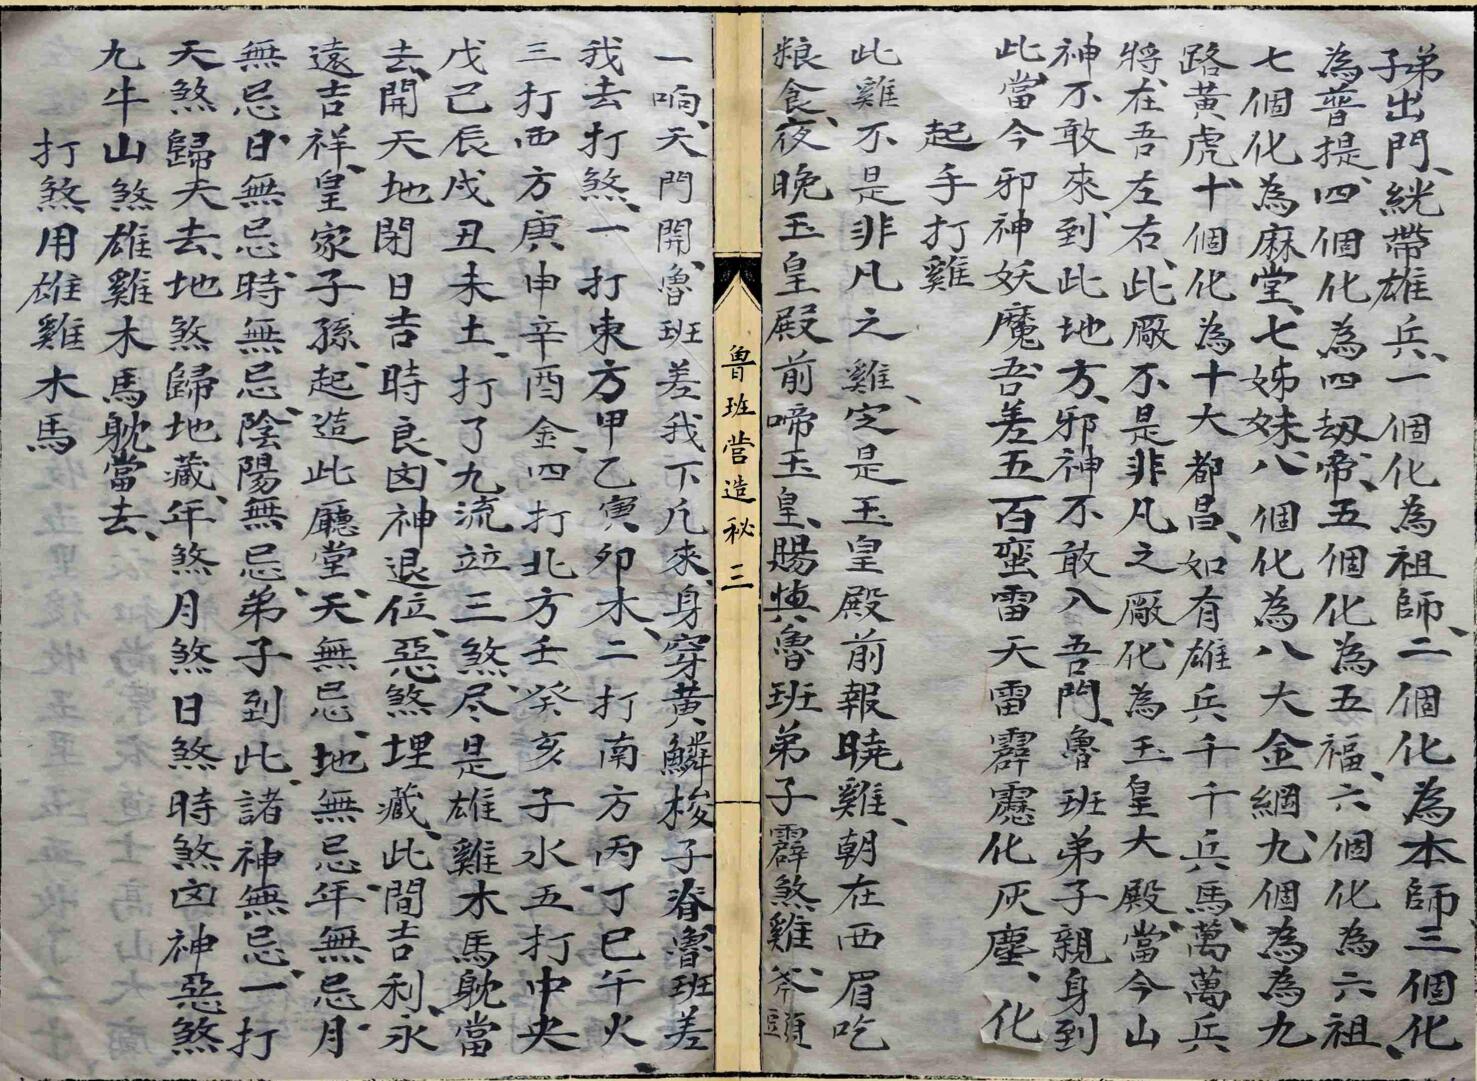 弟子出門、綂帶雄兵、一個化為祖師、二個化為本師三個化
為菩提、四個化為四刼帝、五個化為五福、六個化為六祖、
七個化為麻堂、七姊妹、八個化為八大金綱、九個為為九
路黃虎、十個化為十大都昌、如有雄兵千千兵馬、萬萬兵
將在吾左右、此厰不是非凡之厰、化為玉皇大殿、當今山
神不敢來到此地方、邪神不敢入吾門、魯班弟子親身到
此、當今邪神妖魔、吾差五百蠻雷天雷霹靂化灰塵、化
起手打雞
此雞不是非凡之雞、定是玉皇殿前報曉雞、朝在西眉吃
粮食、夜晚玉皇殿前啼、玉皇賜與魯班弟子霹煞雞、斧頭
一响、天門開、魯班差我下凡來、身穿黃鱗梭子脊、魯班差
我去打煞、一打東方甲乙寅卯木、二打南方丙丁巳午火
三打西方庚申辛酉金、四打北方壬癸亥子水五打中央
戊己辰戌丑未土、打了九流竝三煞、尽是雄雞木馬躭當
去、開天地閉日吉時良、凶神退位、惡煞埋藏、此間吉利、永
遠吉祥、皇家子孫、起造此廳堂、天無忌、地無忌年無忌、月
無忌日、無忌時無忌、陰陽無忌弟子到此、諸神無忌、一打
天煞歸天去、地煞歸地藏、年煞月煞日煞時煞凶神惡煞
九牛山煞雄雞木馬躭當去、
打煞用雄雞木馬
魯班營造秘 三